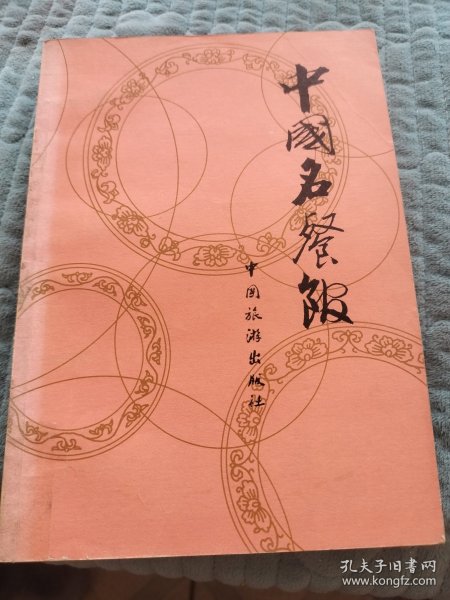 中國名餐馆
中国旅游出版社
孔夫子旧书网
www.kongfz.com